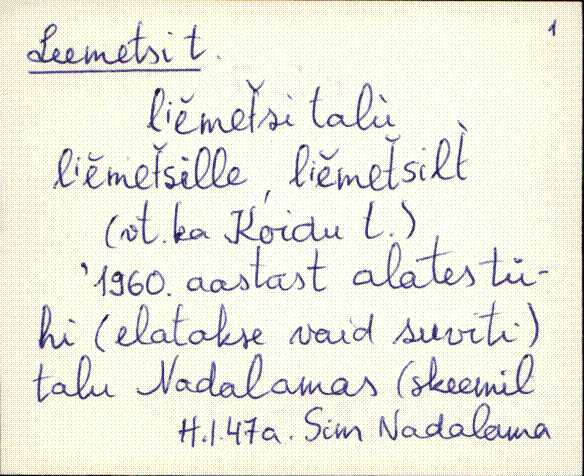 1
Leemetsi t.
liĕmet̆si talù
liĕmet̆sille, liĕmet̆silt̀
(vt. ka Koidu t.)
'1960. aastast alates tü-
hi (elatakse vaid suviti)
talu Nadalamas (skeemil
H.I.47a. Sim Nadalama